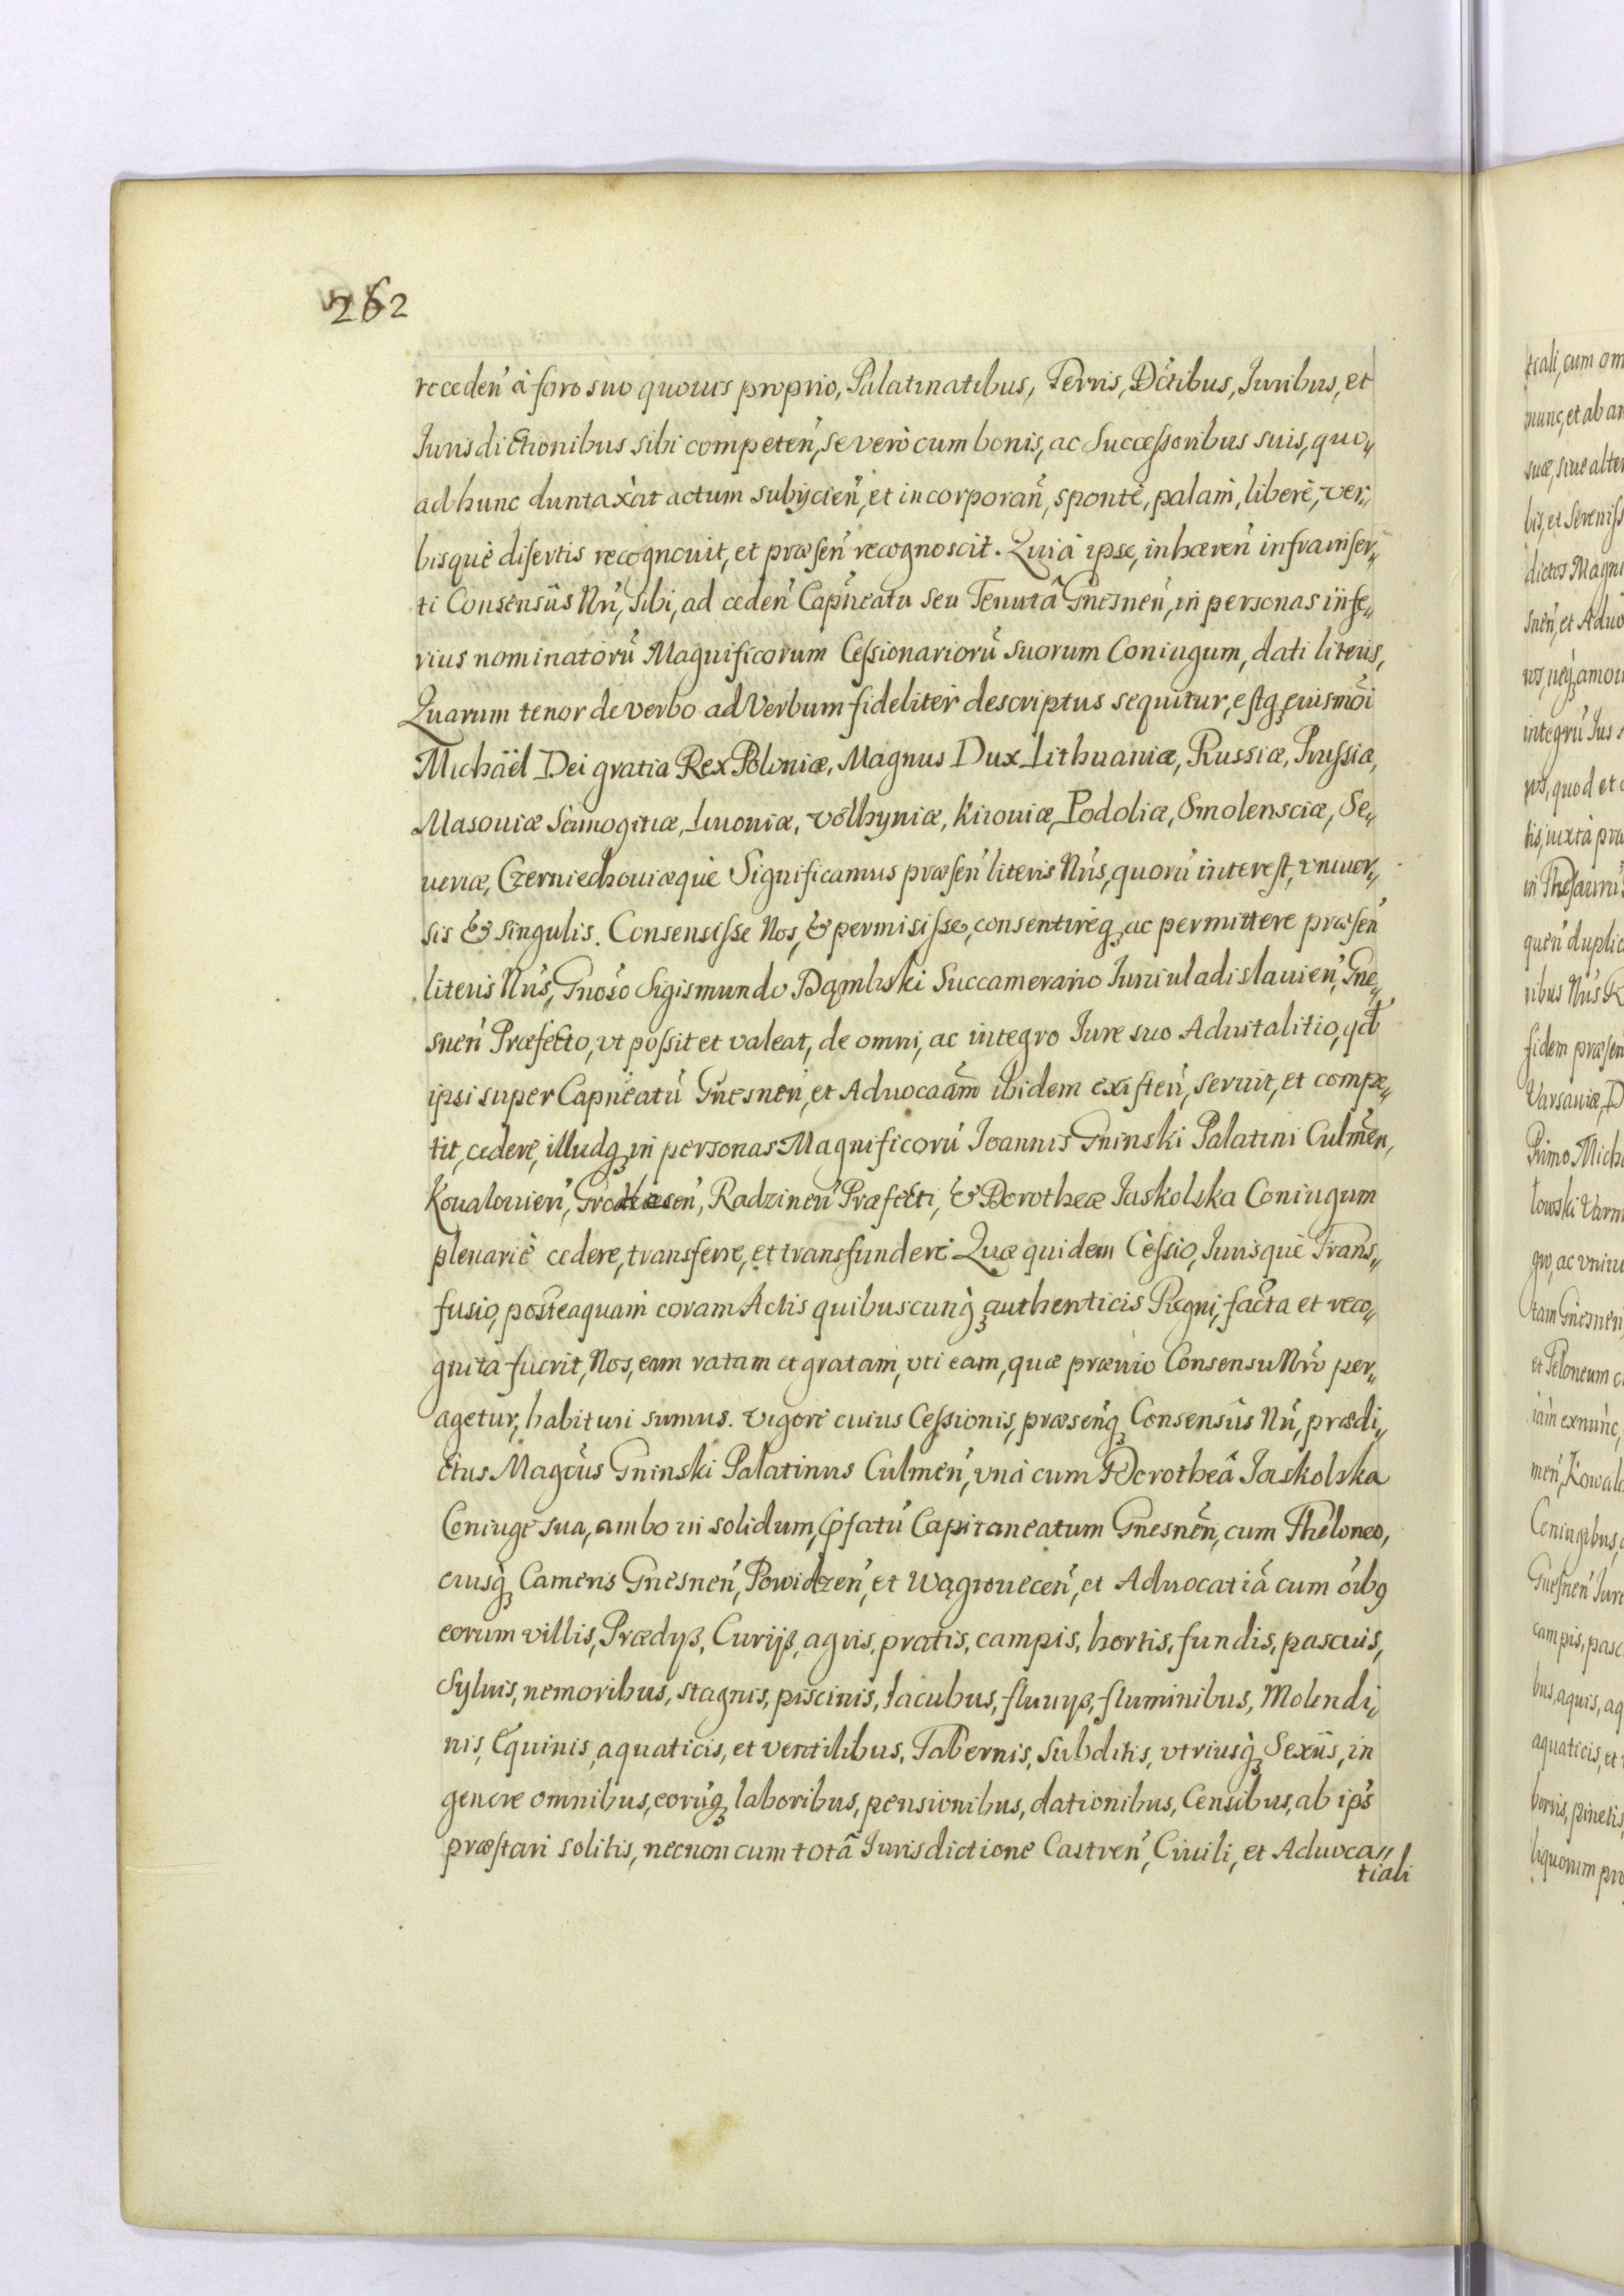 262
receden̄ à foro suo quouis proprio, Palatinatibus, Terris, Dc̄tibus, Iuribus, et
Iurisdictionibus sibi competen̄, se verò cum bonis, ac Succeſsoribus suis, quo„
ad hunc duntaxàt actum subijcien̄, et incorporan̄, spontè, palam̀, liberè, ver„
bisquè disertis recognouit, et præsen̄ recognoscit. Quià ipse, inhæren̄ infrainser„
ti Consensûs Nr̄i, Sibi, ad ceden̄ Capn̄eatu seu Tenutâ Gnesnen̄, in personas infe„
rius nominatorū Magnificorum Ceſsionariorū suorum Coniugum, dati literis,
Quarum tenor de verbo ad Verbum fideliter descriptus sequitur, estq; eiusmōi
Michaël Dei gratia Rex Poloniæ, Magnus Dux Lithuaniæ, Russiæ, Pruſsiæ,
Masouiæ Samogitiæ, Liuoniæ, Volhyniæ, Kiiouiæ, Podoliæ, Smolensciæ, Se„
ueriæ, Czerniechouiæquè Significamus præsen̄ literis Nr̄is, quorū interest, vniuer„
sis & singulis. Consensiſse Nos, & permisiſse, consentireq; ac permittere præsen̄
literis Nr̄is, Gnōso Sigismundo Dąmbski Succamerario Iuniuladislauien̄, Gne„
snen̄ Præfecto, vt poſsit et valeat, de omni, ac integro Iure suo Aduitalitio, qd̄
ipsi super Capn̄eatū Gnesnen̄, et Aduocaām̄ ibidem existen̄, seruit, et compe„
tit, cedere, illudq; in personas Magnificorū Ioannis Gninski Palatini Culmen̄,
Koualouien̄, Grodecen̄, Radzinen̄ Præfecti, & Dorotheæ Jaskolska Coniugum
plenariè cedere, transferre, et transfundere. Quæ quidem Ceſsio, Iurisquè Trans„
fusio, posteaquam̀ coram Actis quibuscunq; authenticis Regni, facta et reco„
gnita fuerit, Nos, eam ratam et gratam, vti eam, quæ præuio Consensu Nr̄o per„
agetur, habituri sumus. Vigore cuius Ceſsionis, præsen̄q; Consensûs Nr̄i, prædi„
ctus Magcūs Gninski Palatinus Culmen̄, vnà cum Dorotheâ Jaskolska
Coniuge sua, ambo in solidum, p̄fatū Capitaneatum Gnesnen̄, cum Theloneo,
eiusq; Cameris Gnesnen̄, Powidzen̄, et Wągrouecen̄, et Aduocatiā cum oībq
eorum villis, Prædijs, Curijs, agris, pratis, campis, hortis, fundis, pascuis,
Syluis, nemoribus, stagnis, piscinis, lacubus, fluuijs, fluminibus, Molendi„
nis, Equinis, aquaticis, et ventilibus, Tabernis, Subditis, vtriusq; Sexûs, in
genere omnibus, eorūq; laboribus, pensionibus, dationibus, Censibus, ab ip̄s
præstari solitis, necnon cum totâ Iurisdictione Castren̄, Ciuili, et Aduoca„
tiali